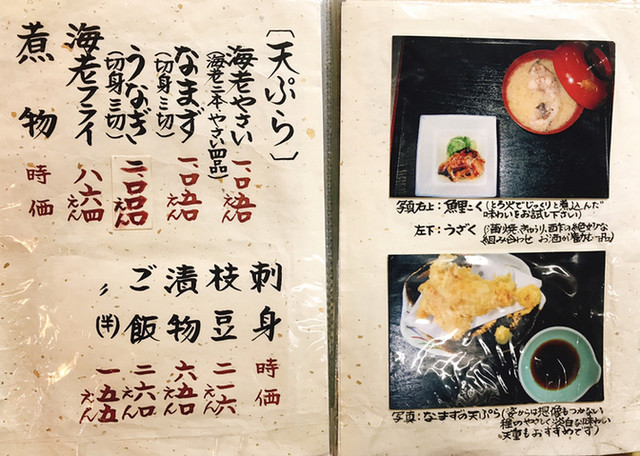 〔天ぷら〕
海老やさい 一、〇五〇えん
(海老二本やさい四品)
なまず 一、〇五〇えん
(切身三切)
うなぎ 二、一〇〇えん
(切身三切)
海老フライ 八六四えん
煮物 時価
刺身 時価
枝豆 二一六えん
漬物 六五〇えん
ご飯 二六〇えん
〃 (半) 一五五えん
写真右上:鯉こく(とろ火でじっくりと煮込んだ
味わいをお試し下さい)
左下:うざく(蒲焼、きゅうり、酢の絶妙な
組み合わせ お酒が進む一品)
写真:なまずの天ぷら(姿からは想像もつかない
程のやさしく淡白な味わい
天重もおすすめです)